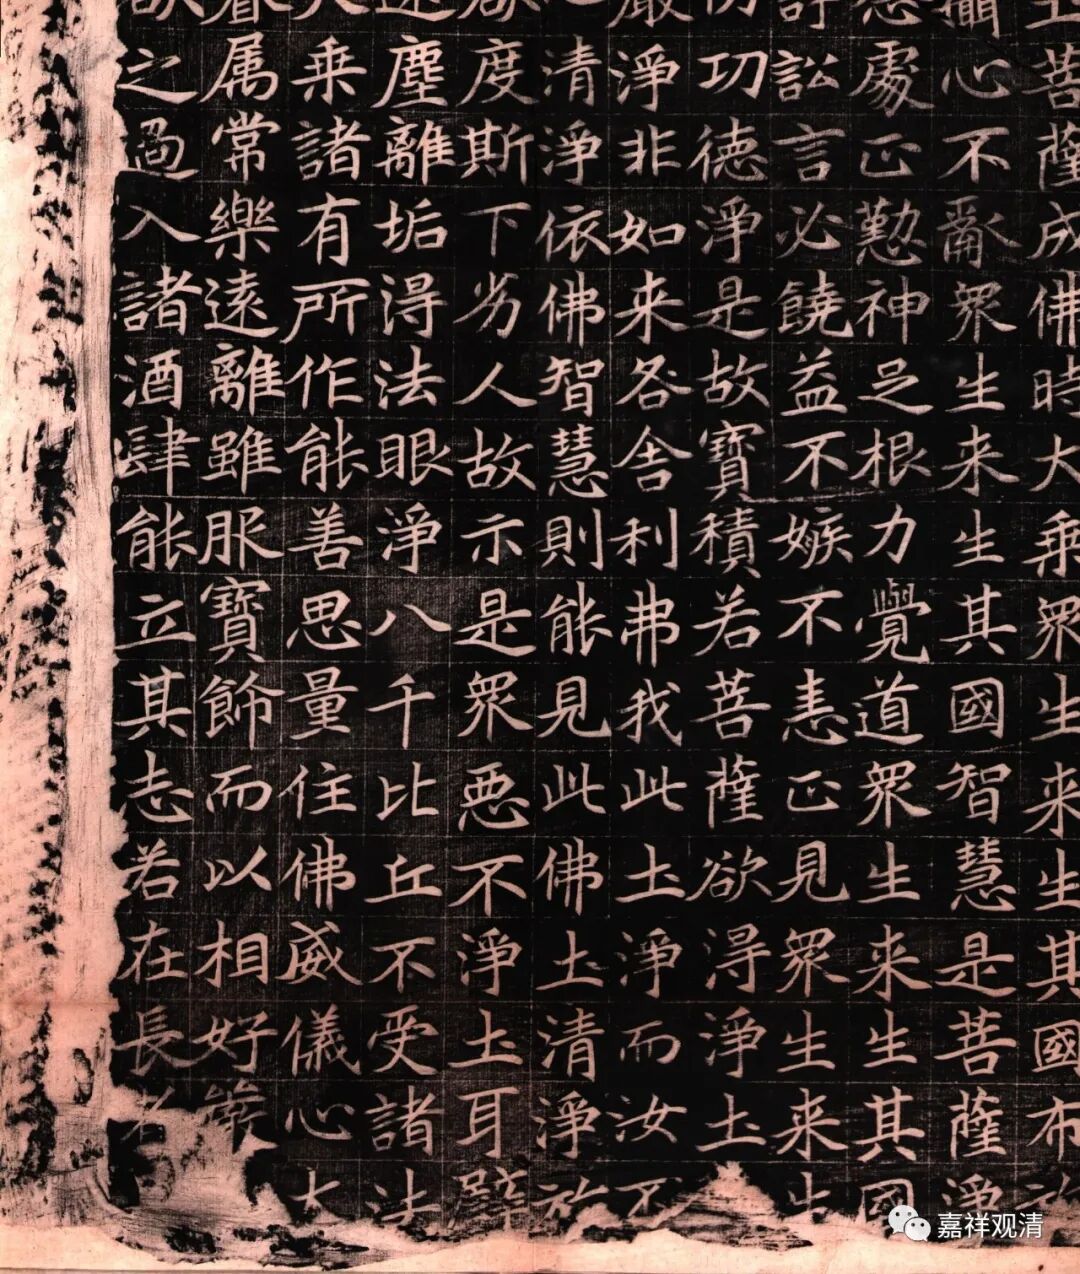 土菩薩成佛時大乘眾生来生其國布
攝心不亂眾生来生其國智慧是菩薩淨
念處正懃神足根力覺道眾生来生其國
訟言必饒益不嫉不恚正見眾生来生
切功德淨是故寶積若菩薩欲得淨土
嚴淨非如来咎舍利弗我此土淨而汝不
清淨依佛智慧則能見此佛土清淨於
欲度斯下劣人故示是眾惡不淨土耳譬
遠塵離垢得法眼淨八千比丘不受諸法
大乘諸有所作能善思量住佛威儀心大
眷属常樂遠離雖服寶飾而以相好嚴
欲之過入諸酒肆能立其志若在長者
嘉祥观清